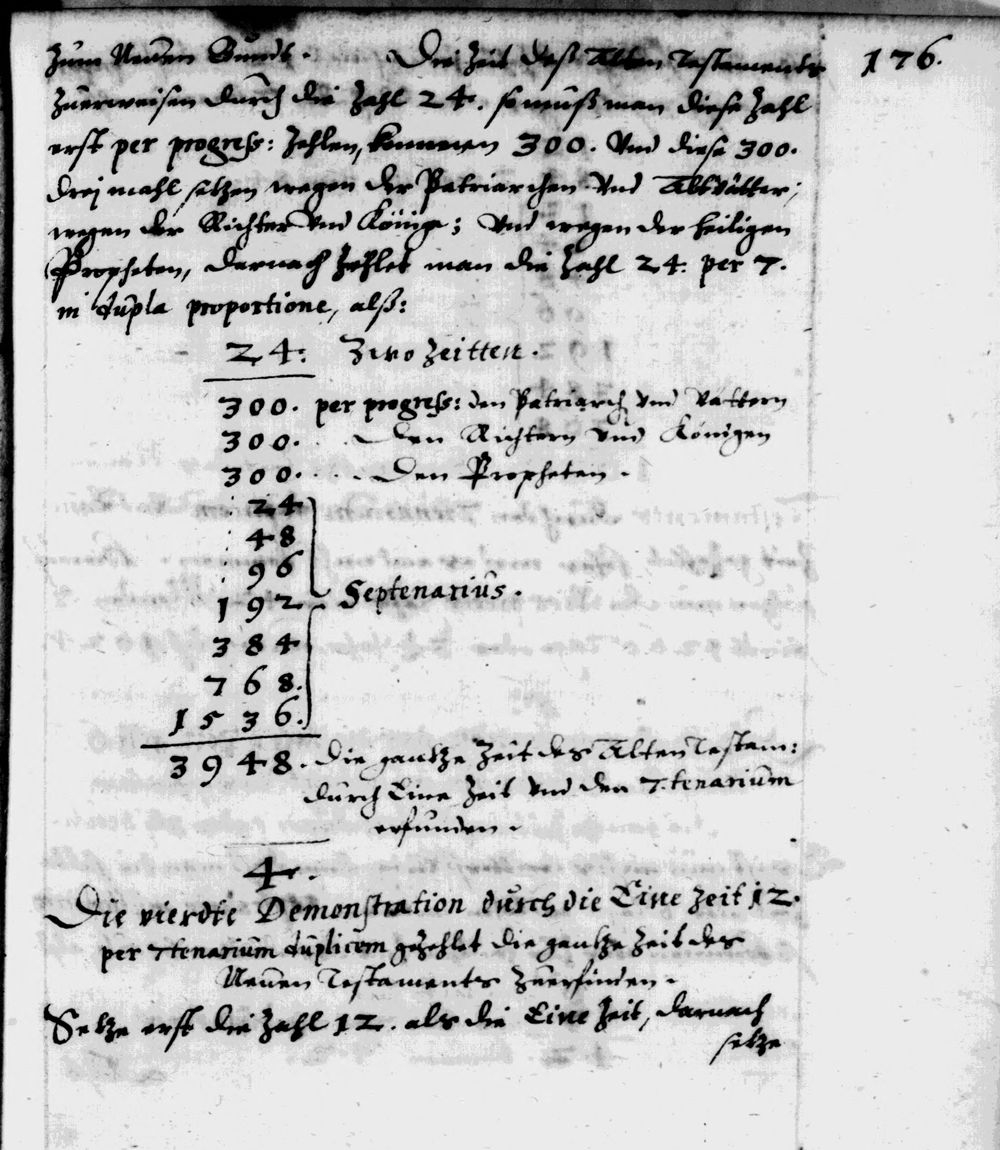 zum Neuen Bundt. Die Zeit deß Alten Testaments 176.
zuerweisen durch die Zahl 24. so muß man diese Zahl
erst per progreß: zehlen, kommen 300. Und diese 300.
dreÿ mahl setzen wegen der Patriarchen Und Altvätter,
wegen der Richter Und Könige; Und wegen der heiligen
Propheten, darnach zehlet man die Zahl 24. per 7.
in dupla proportione, alß:
24: Zwo Zeitten.
300. per progreß: den Patriarch und Vattern
300. . . den Richtern und Königen
300. . . . den Propheten.
24
48
96
192 Septenarius.
384
768.
1536.
3948. die gantze Zeit des Alten Testam:
durch Eine Zeit Und den 7.tenarium
erfunden.
4.
Die vierdte Demonstration durch die Eine Zeit 12.
per 7tenarium duplicem gezehlet die gantze Zeit des
Neuen Testaments zuerfinden.
Setze erst die Zahl 12. als die Eine Zeit, darnach
setze